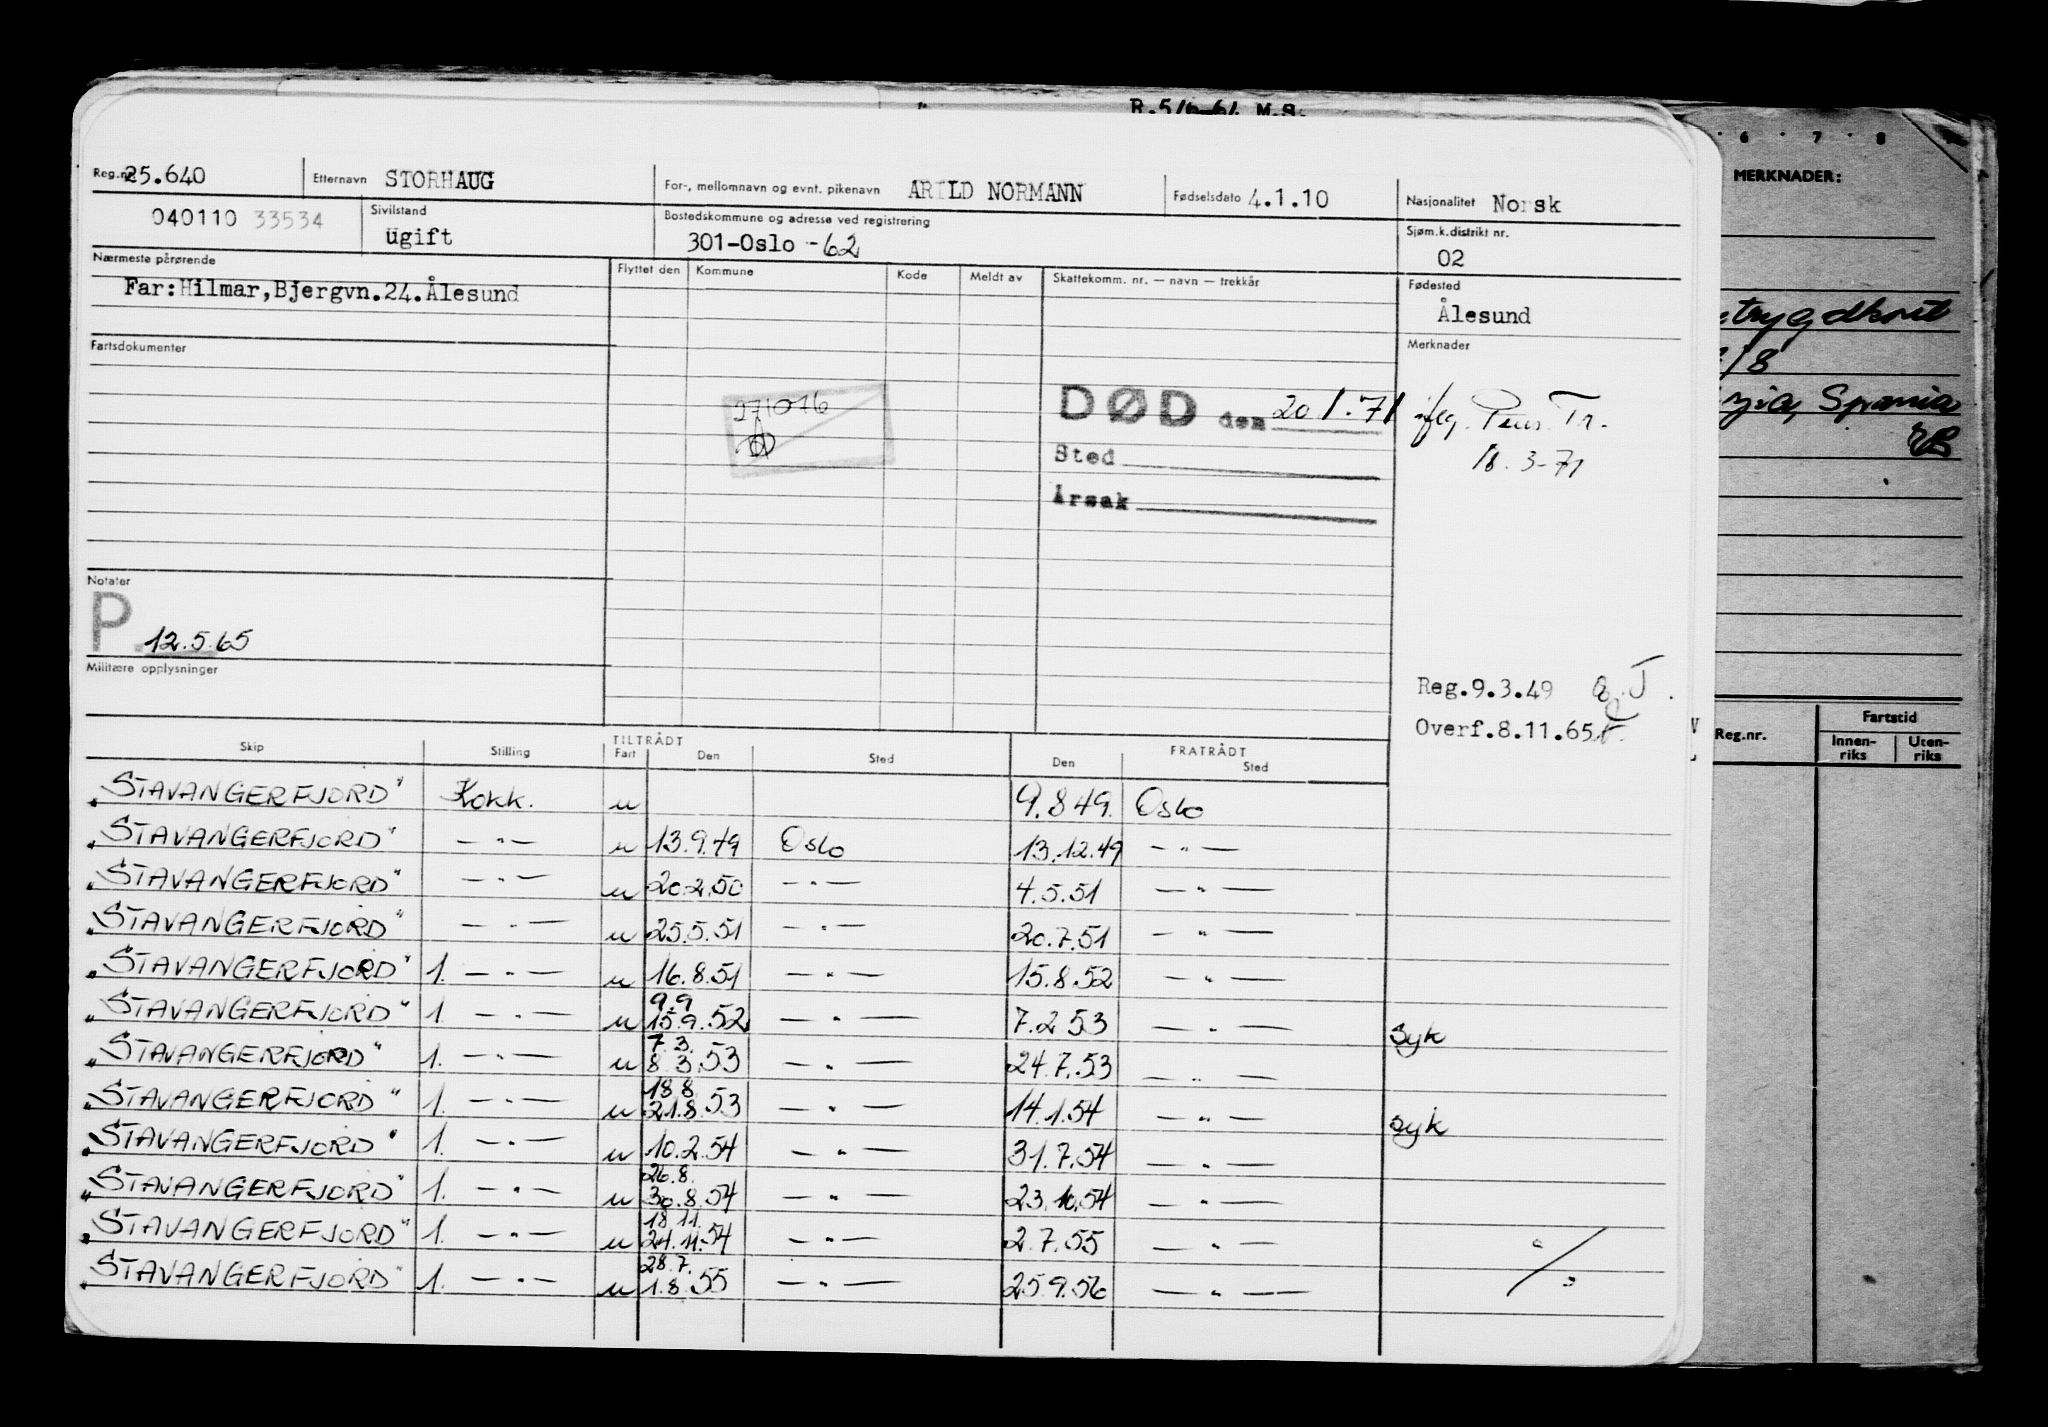 R.5/6-61 M.S.
Reg.nr. 25.640 Etternavn STORHAUG For-, mellomnavn og evnt. pikenavn ARILD NORMANN Fødselsdato 4.1.10 Nasjonalitet Norsk
040110 33534 Sivilstand Ugift Bostedskommune og adresse ved registrering 301-Oslo -62 Sjøm.k.distrikt nr. 02
Nærmeste pårørende Flyttet den Kommune Kode Meldt av Skattekomm. nr. — navn — trekkår Fødested
Far:Hilmar,Bjergvn.24.Ålesund Ålesund
Fartsdokumenter Merknader
271076
DØD den 20/1.71 iflg. Pens. Tr.
Sted 18.3-71
Årsak
Notater
P 12.5.65
Militære opplysninger
Reg.9.3.49
Overf.8.11.65
Skip Stilling TILTRÅDT Fart Den Sted FRATRÅDT Den Sted
"STAVANGERFJORD" Kokk. u 9.8.49. Oslo
"STAVANGERFJORD" — " — u 13.9.49 Oslo 13.12.49 — " —
"STAVANGERFJORD" — " — u 20.2.50 — " — 4.5.51 — " —
"STAVANGERFJORD" — " — u 25.5.51 — " — 20.7.51 — " —
"STAVANGERFJORD" 1. — " — u 16.8.51 — " — 15.8.52 — " —
"STAVANGERFJORD" 1. — " — u 9.9 15.9.52 — " — 7.2.53 — " — Syk
"STAVANGERFJORD" 1. — " — u 7.3. 8.3.53 — " — 24.7.53 — " —
"STAVANGERFJORD" 1. — " — u 18.8 21.8.53 — " — 14.1.54 — " — syk
"STAVANGERFJORD" 1. — " — u 10.2.54 — " — 31.7.54 — " —
"STAVANGERFJORD" 1. — " — u 26.8. 30.8.54 — " — 23.10.54 — " —
"STAVANGERFJORD" 1. — " — u 18.11. 21.11.54 — " — 2.7.55 — " —
"STAVANGERFJORD" 1. — " — u 28.7. 1.8.55 — " — 25.9.56 — " —
6 7 8
MERKNADER:
trygdkont
/8
Spania
Reg.nr. Fartstid
Innenriks Utenriks